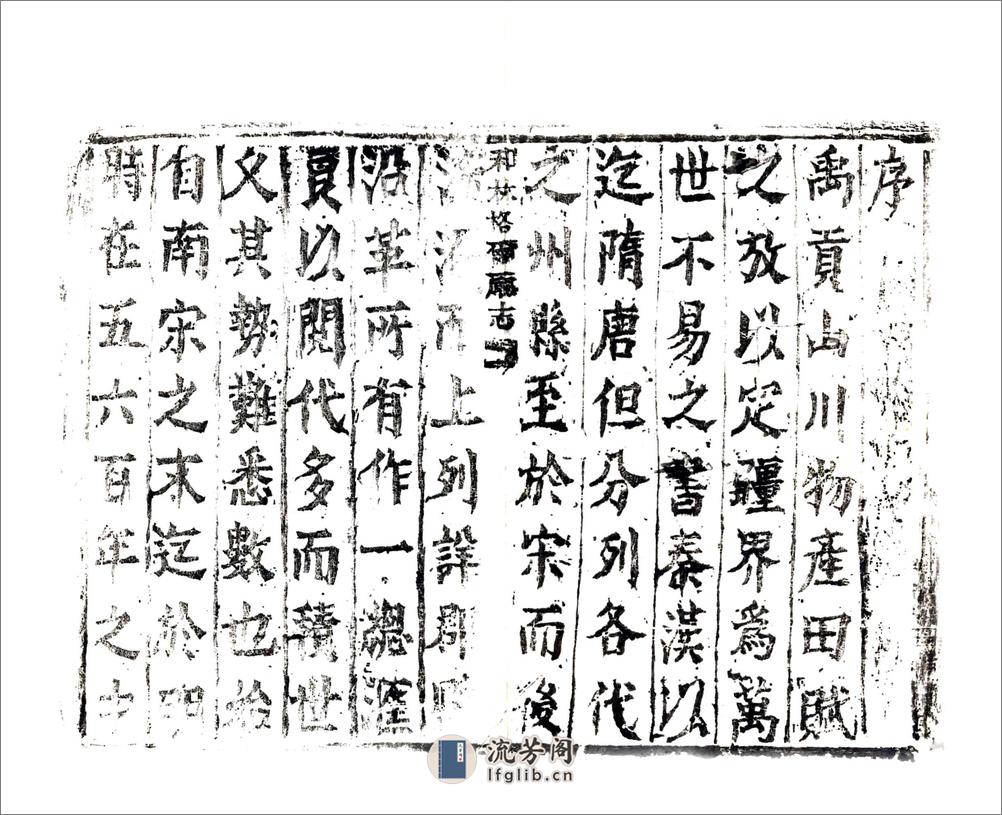 序
禹貢山川物產田賦
之放以定疆界爲萬
世不易之書秦漢以
迄隋唐但分列各代
之州縣至於宋而後
和林格爾廳志
上列詳郡
沿革所有作一總滙
以閱代多而積世
久其勢難悉數也始
自南宋之末迄於明
時在五六百年之
流芳阁
lfglib.cn